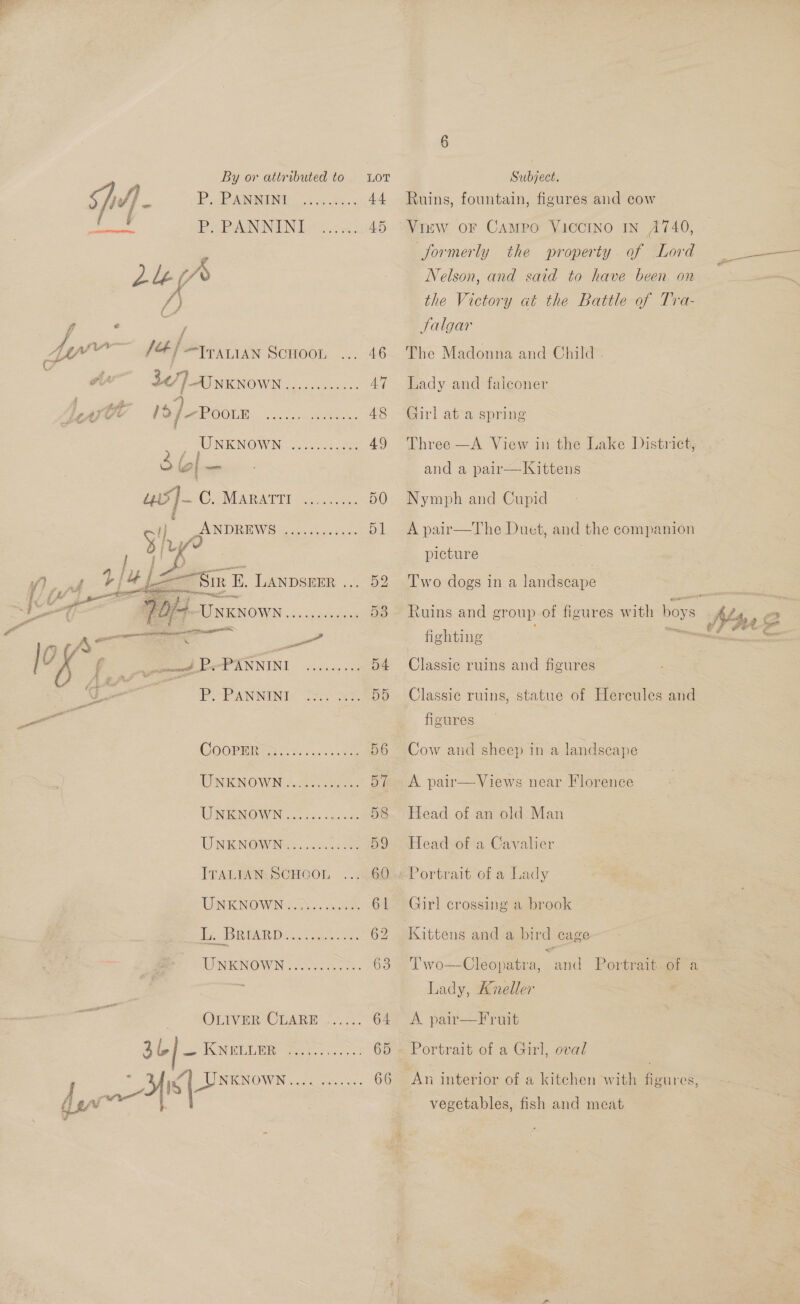 6
By or attributed to LOT Subject.
P. PANNINI ......... 44 Ruins, fountain, figures and cow
P. PANNINI ...... 45 VIEW OF CAMPO VICCINO IN 1740,
formerly the property of Lord
Nelson, and said to have been on
the Victory at the Battle of Tra-
falgar
ITALIAN SCHOOL ... 46 The Madonna and Child
UNKNOWN ............ 47 Lady and falconer
POOLE ............... 48 Girl at a spring
UNKNOWN ............ 49 Three—A View in the Lake District,
and a pair—Kittens
C. MARATTI ......... 50 Nymph and Cupid
ANDREWS ............ 51 A pair—The Duet, and the companion
picture
SIR E. LANDSEER ... 52 Two dogs in a landscape
UNKNOWN ............ 53 Ruins and group of figures with boys
fighting
P. PANNINI ......... 54 Classic ruins and figures
P. PANNINI ......... 55 Classic ruins, statue of Hercules and
figures
COOPER ............... 56 Cow and sheep in a landscape
UNKNOWN ............ 57 A pair—Views near Florence
UNKNOWN ............ 58 Head of an old Man
UNKNOWN ............ 59 Head of a Cavalier
ITALIAN SCHOOL ... 60 Portrait of a Lady
UNKNOWN ............ 61 Girl crossing a brook
L. BRIARD ............ 62 Kittens and a bird cage
UNKNOWN ............ 63 Two—Cleopatra, and Portrait of a
Lady, Kneller
OLIVER CLARE ...... 64 A pair—Fruit
KNELLER ............ 65 Portrait of a Girl, oval
UNKNOWN ............ 66 An interior of a kitchen with figures,
vegetables, fish and meat